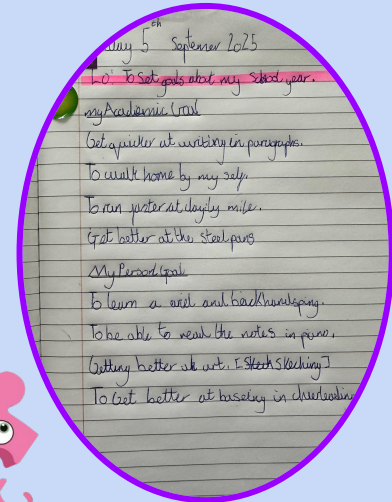 day 5th Septemer 2025
Lo: To set goals about my school year.
my Academic Goal
Get quicker at writing in paragraphs.
To walk home by my self.
To run faster at dayily mile.
Get better at the steel pans
My Person Goal
To learn a and back handspring.
To be able to read the notes in piano.
Getting better at art. [Skech Skeching]
To Get better at baseing in cheerleading